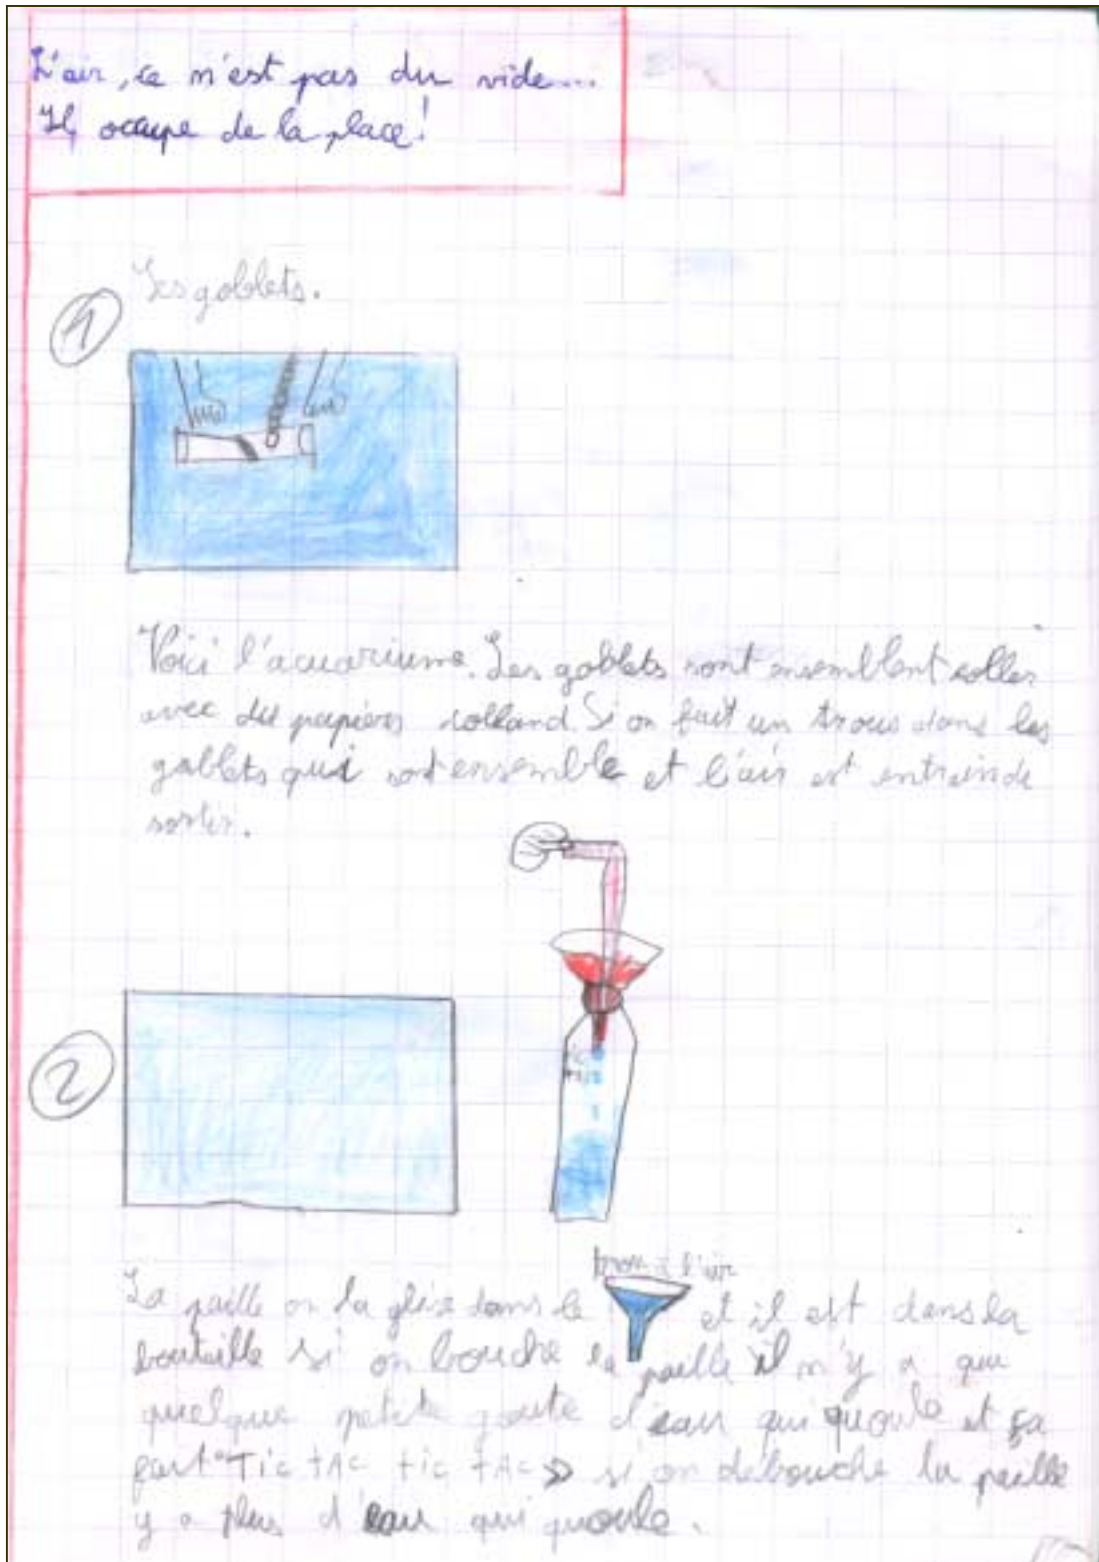 L'air, ce n'est pas du vide...
Il occupe de la place!
Les goblets.
1
Voici l'acuariums. Les goblets sont ensemblent coller
avec du papiers colland. Si on fait un trous dans les
goblets qui sont ensemble et l'air est entrain de
sortir.
2
tic
La paille on la glise dans le et il est dans la
bouteille si on bouche la paille il n'y a que
quelque petite goute d'eau qui quoule et ça
fait "Tic tAc tic tAc » si on débouche la paille
y a plus d'eau qui quoule.